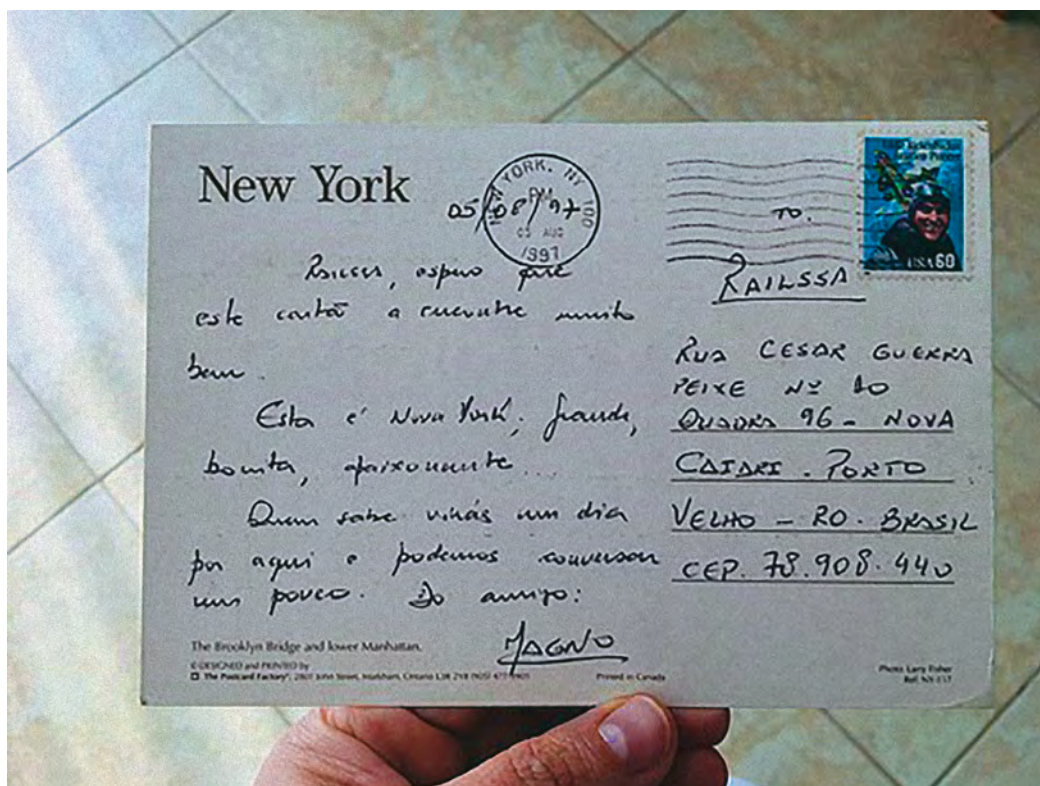 New York
05/08/97
NEW YORK, NY 100
PM
05 AUG
1997
USA 60
espero que
este cartão a encontre muito
bem.
Esta é Nova York, grande,
bonita, apaixonante...
Quem sabe virás um dia
por aqui e podemos conversar
um pouco. Do amigo:
MAGNO
TO.
RAILSSA
RUA CESAR GUERRA
PEIXE Nº 10
QUADRA 96 - NOVA
CAIARI - PORTO
VELHO - RO. BRASIL
CEP. 78.908.440
The Brooklyn Bridge and lower Manhattan.
© DESIGNED and PRINTED by
The Postcard Factory®, 2801 John Street, Markham, Ontario L3R 2Y8 (905) 477-9901
Printed in Canada
Photo: Larry Fisher
Ref: NY-117